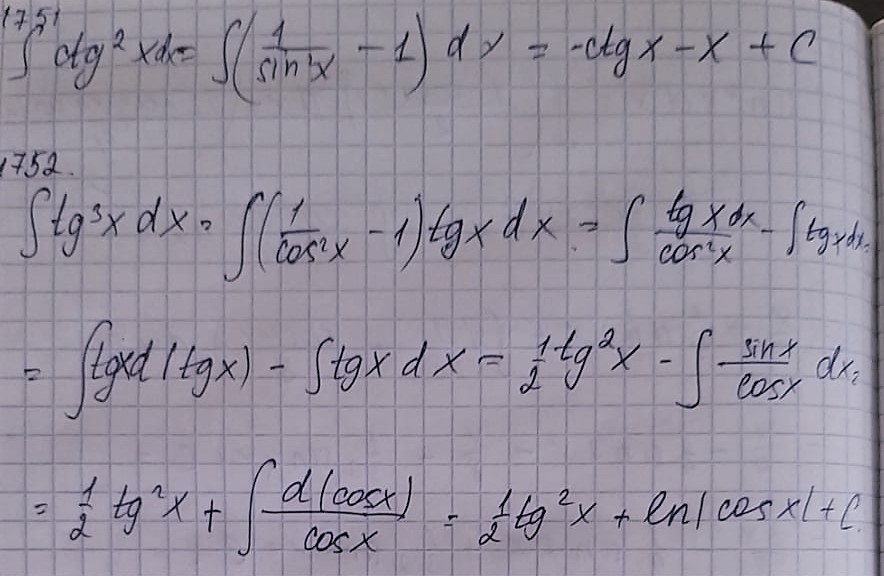 1751
∫ ctg² x dx = ∫(1/sin²x − 1) dx = -ctg x − x + C
1752.
∫ tg³x dx = ∫(1/cos²x − 1) tg x dx = ∫ tg x dx/cos²x − ∫ tg x dx =
= ∫ tg x d(tg x) − ∫ tg x d x = 1/2 tg²x − ∫ sin x/cos x dx =
= 1/2 tg²x + ∫ d(cos x)/cos x = 1/2 tg²x + ln|cos x| + C